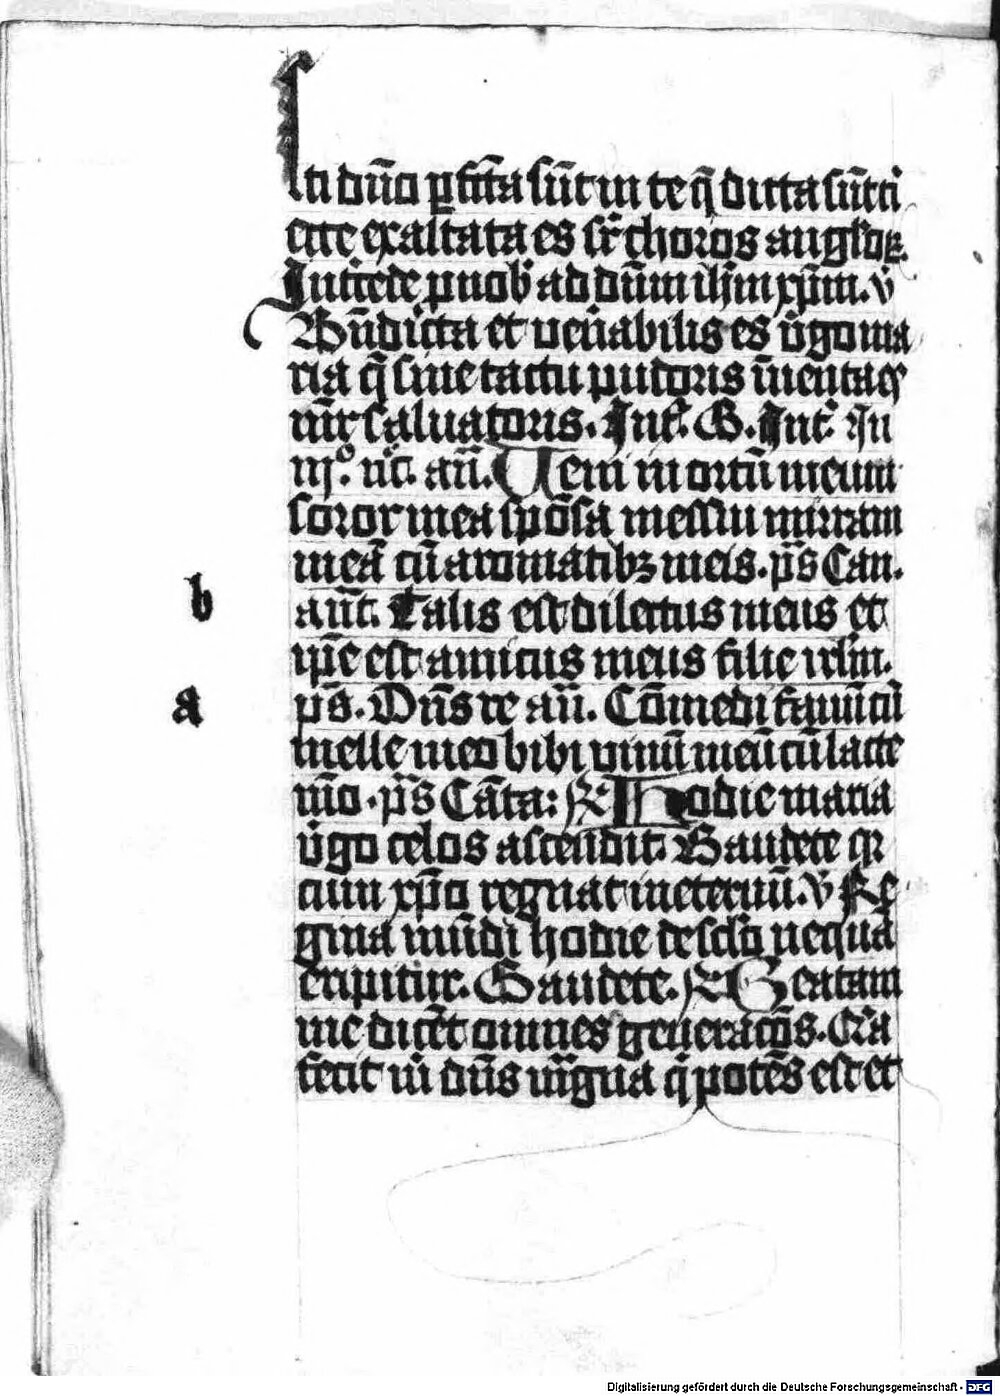 sti dn̄o ꝑfc̄ta sūt in te q̄ dicta sūt ti
cite exaltata es sr̄ choros anglōꝝ.
Int̄cede p nob̄ ad dn̄m ih̄m xp̄m. v̄
Bn̄dicta et uen̄abilis es v̄go ma
ria q̄ sine tactu pudoris īuenta es
mr̄ saluatoris. Int̄. G. Int̄. In
iijº. nͨ. an̄. Ueni in ortū meum
soror mea spōsa messui mirram
meā cū aromatibꝫ meis. ps̄ Can.
b
ant̄. Talis est dilectus meus et
ip̄e est amicus meus filie irlm̄.
a
ps̄. Dn̄s re an̄. Cōmedi fauū cū
melle meo bibi uinū meū cū lacte
mō. ps̄ Cāta: R̄ Hodie maria
v̄go celos ascendit. Gaudete qr
cum xp̄o regnat in eternū. v̄ Re
gina mūdi hodie de sclo nequā
eripitur. Gaudete. R̄ Beatam
me dicēt omnes generacōs. Qr̄a
fecit m̄ dn̄s m̄gna q̄ potēs est et
Digitalisierung gefördert durch die Deutsche Forschungsgemeinschaft - DFG